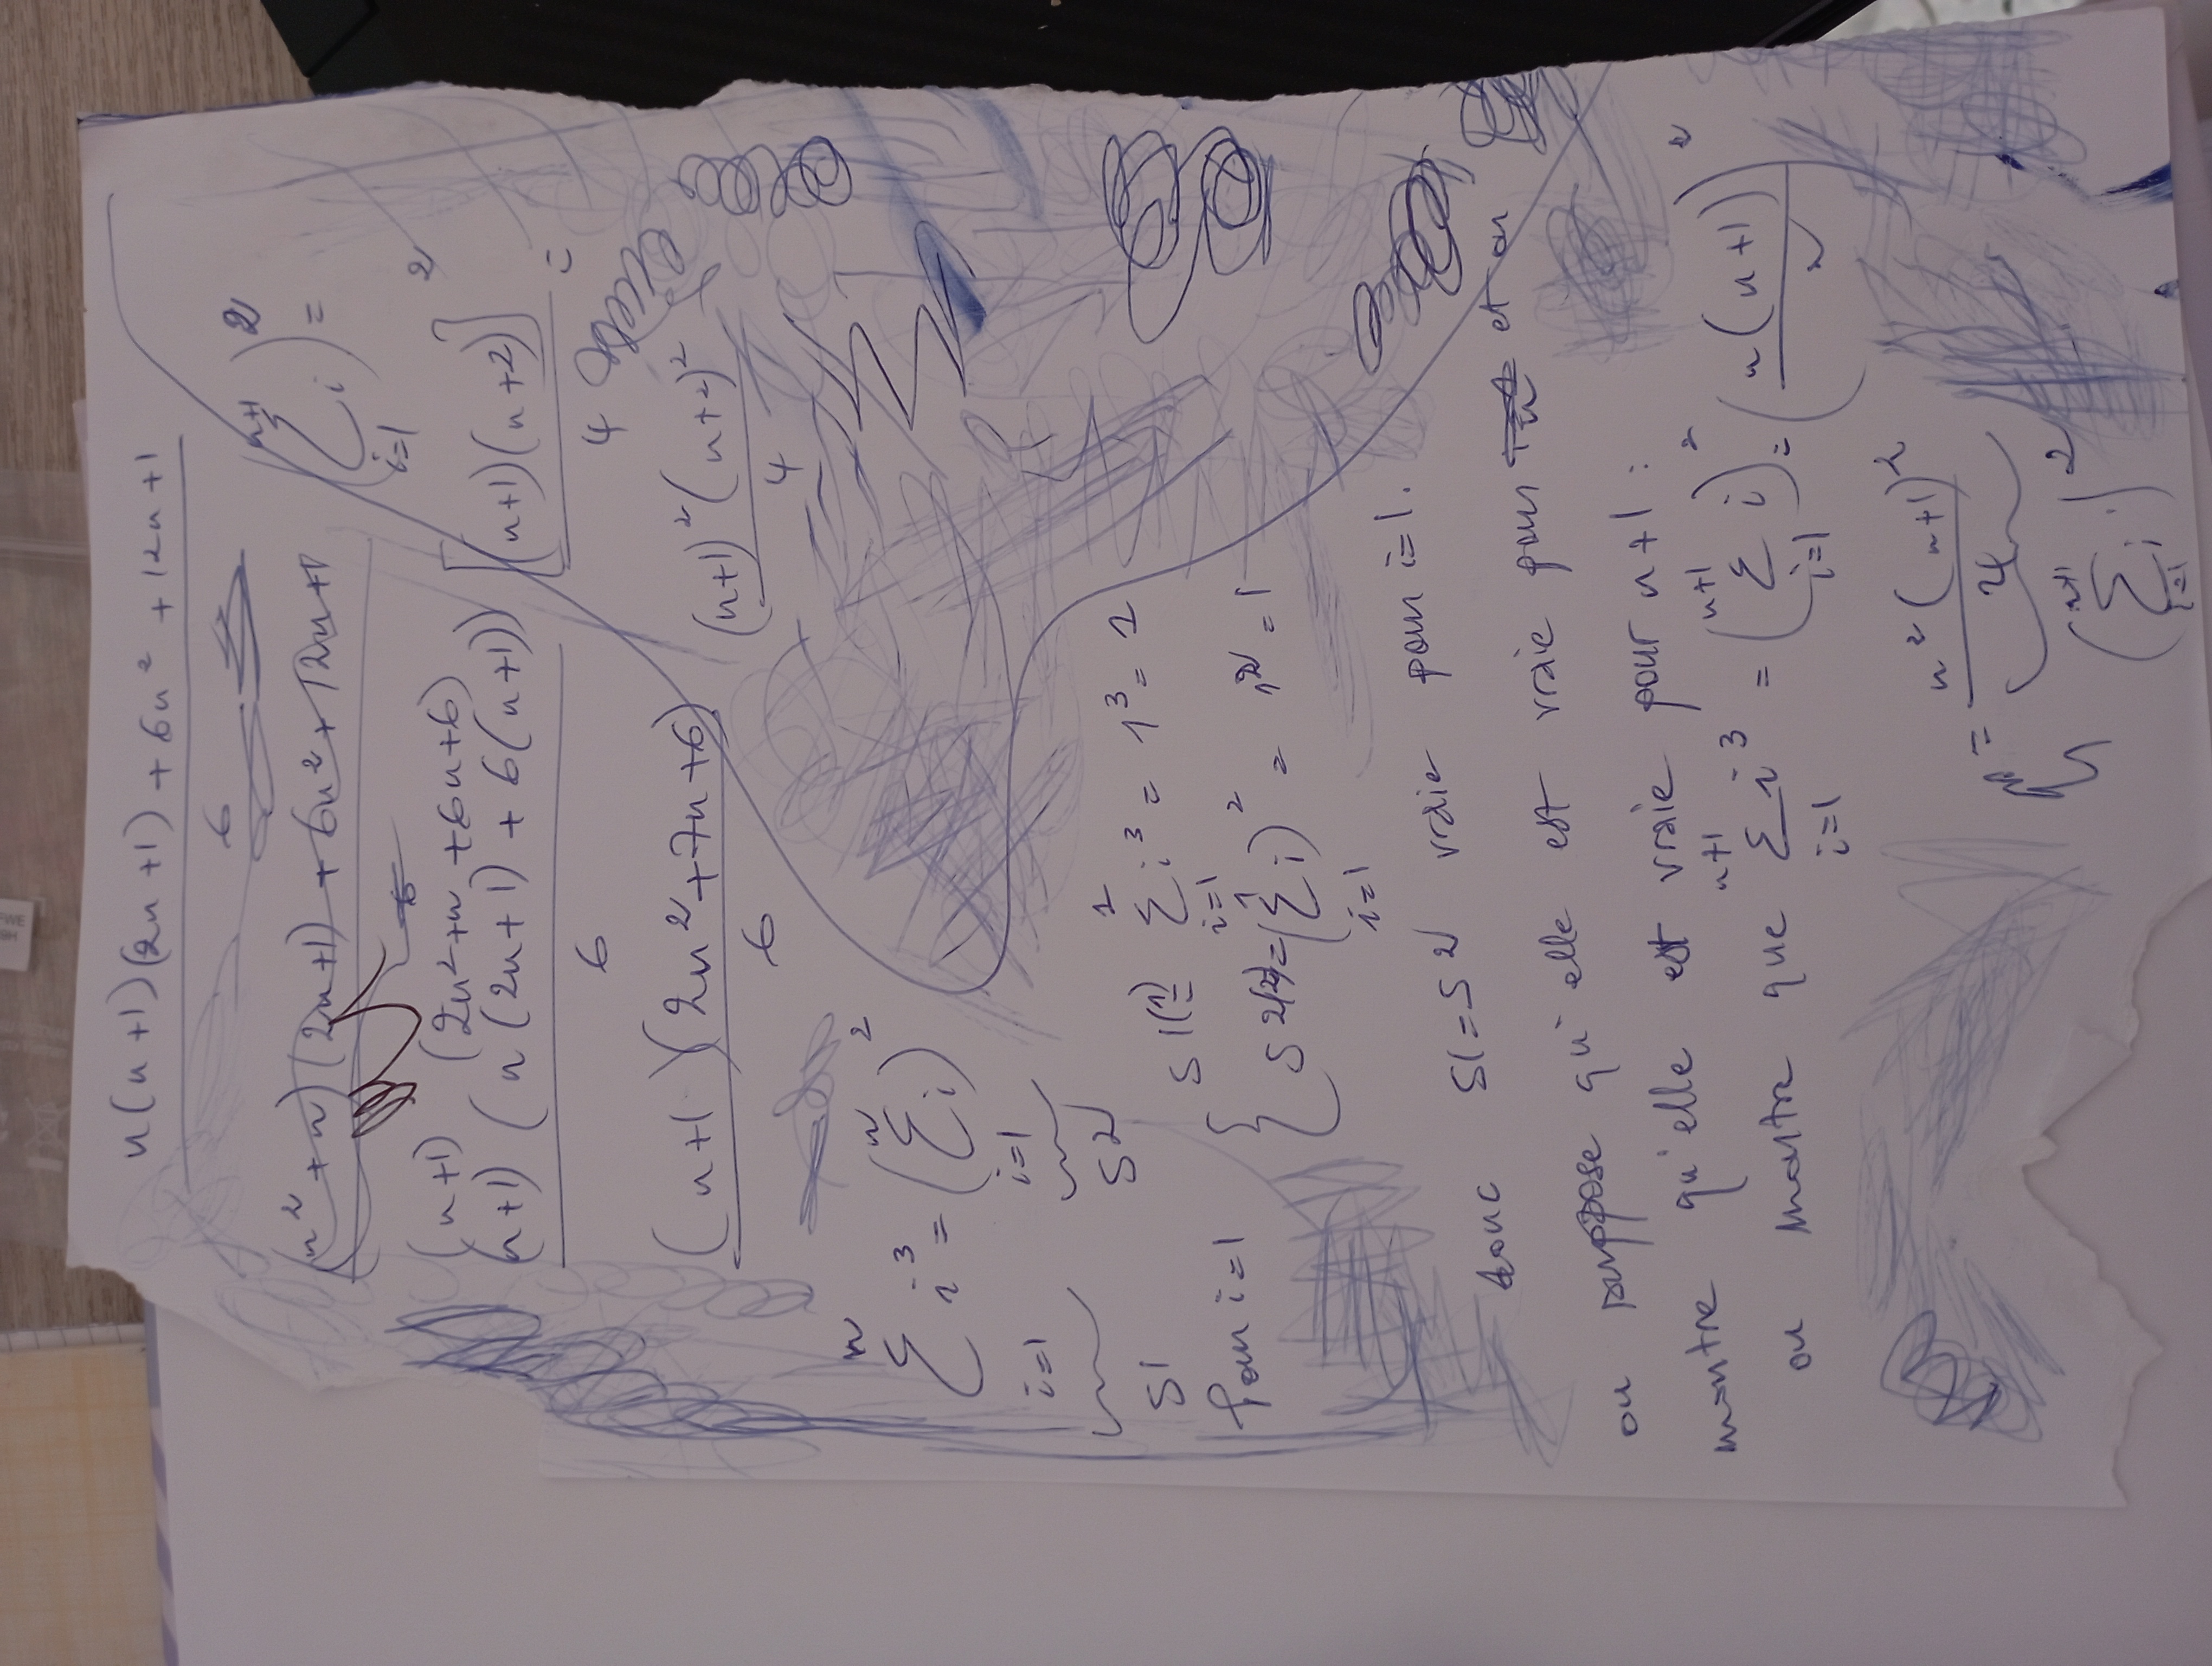 n(n+1)(2n+1) + 6n² + 12n+1
6
(n²+n)(2n+1) + 6n² + 12n+1
6
(n+1) (2n²+n+6n+6)
(n+1) (n(2n+1) + 6(n+1))
6
(n+1)(2n²+7n+6)
6
n+1
(Σi)² =
i=1
[(n+1)(n+2)]² =
4
(n+1)²(n+2)²
4
n n
Σ i³ = (Σ i)²
i=1 i=1
S1 S2
Pour i=1
1
S1(1) = Σ i³ = 1³ = 1
i=1
1
S2 = (Σ i)² = 1² = 1
i=1
donc S1=S2 vraie pour i=1.
on suppose qu'elle est vraie pour n et on
montre qu'elle est vraie pour n+1 :
n+1 n+1
on montre que Σ i³ = (Σ i)² = (n(n+1))²
i=1 i=1 2
= n²(n+1)²
4
n+1
(Σ i)²
i=1